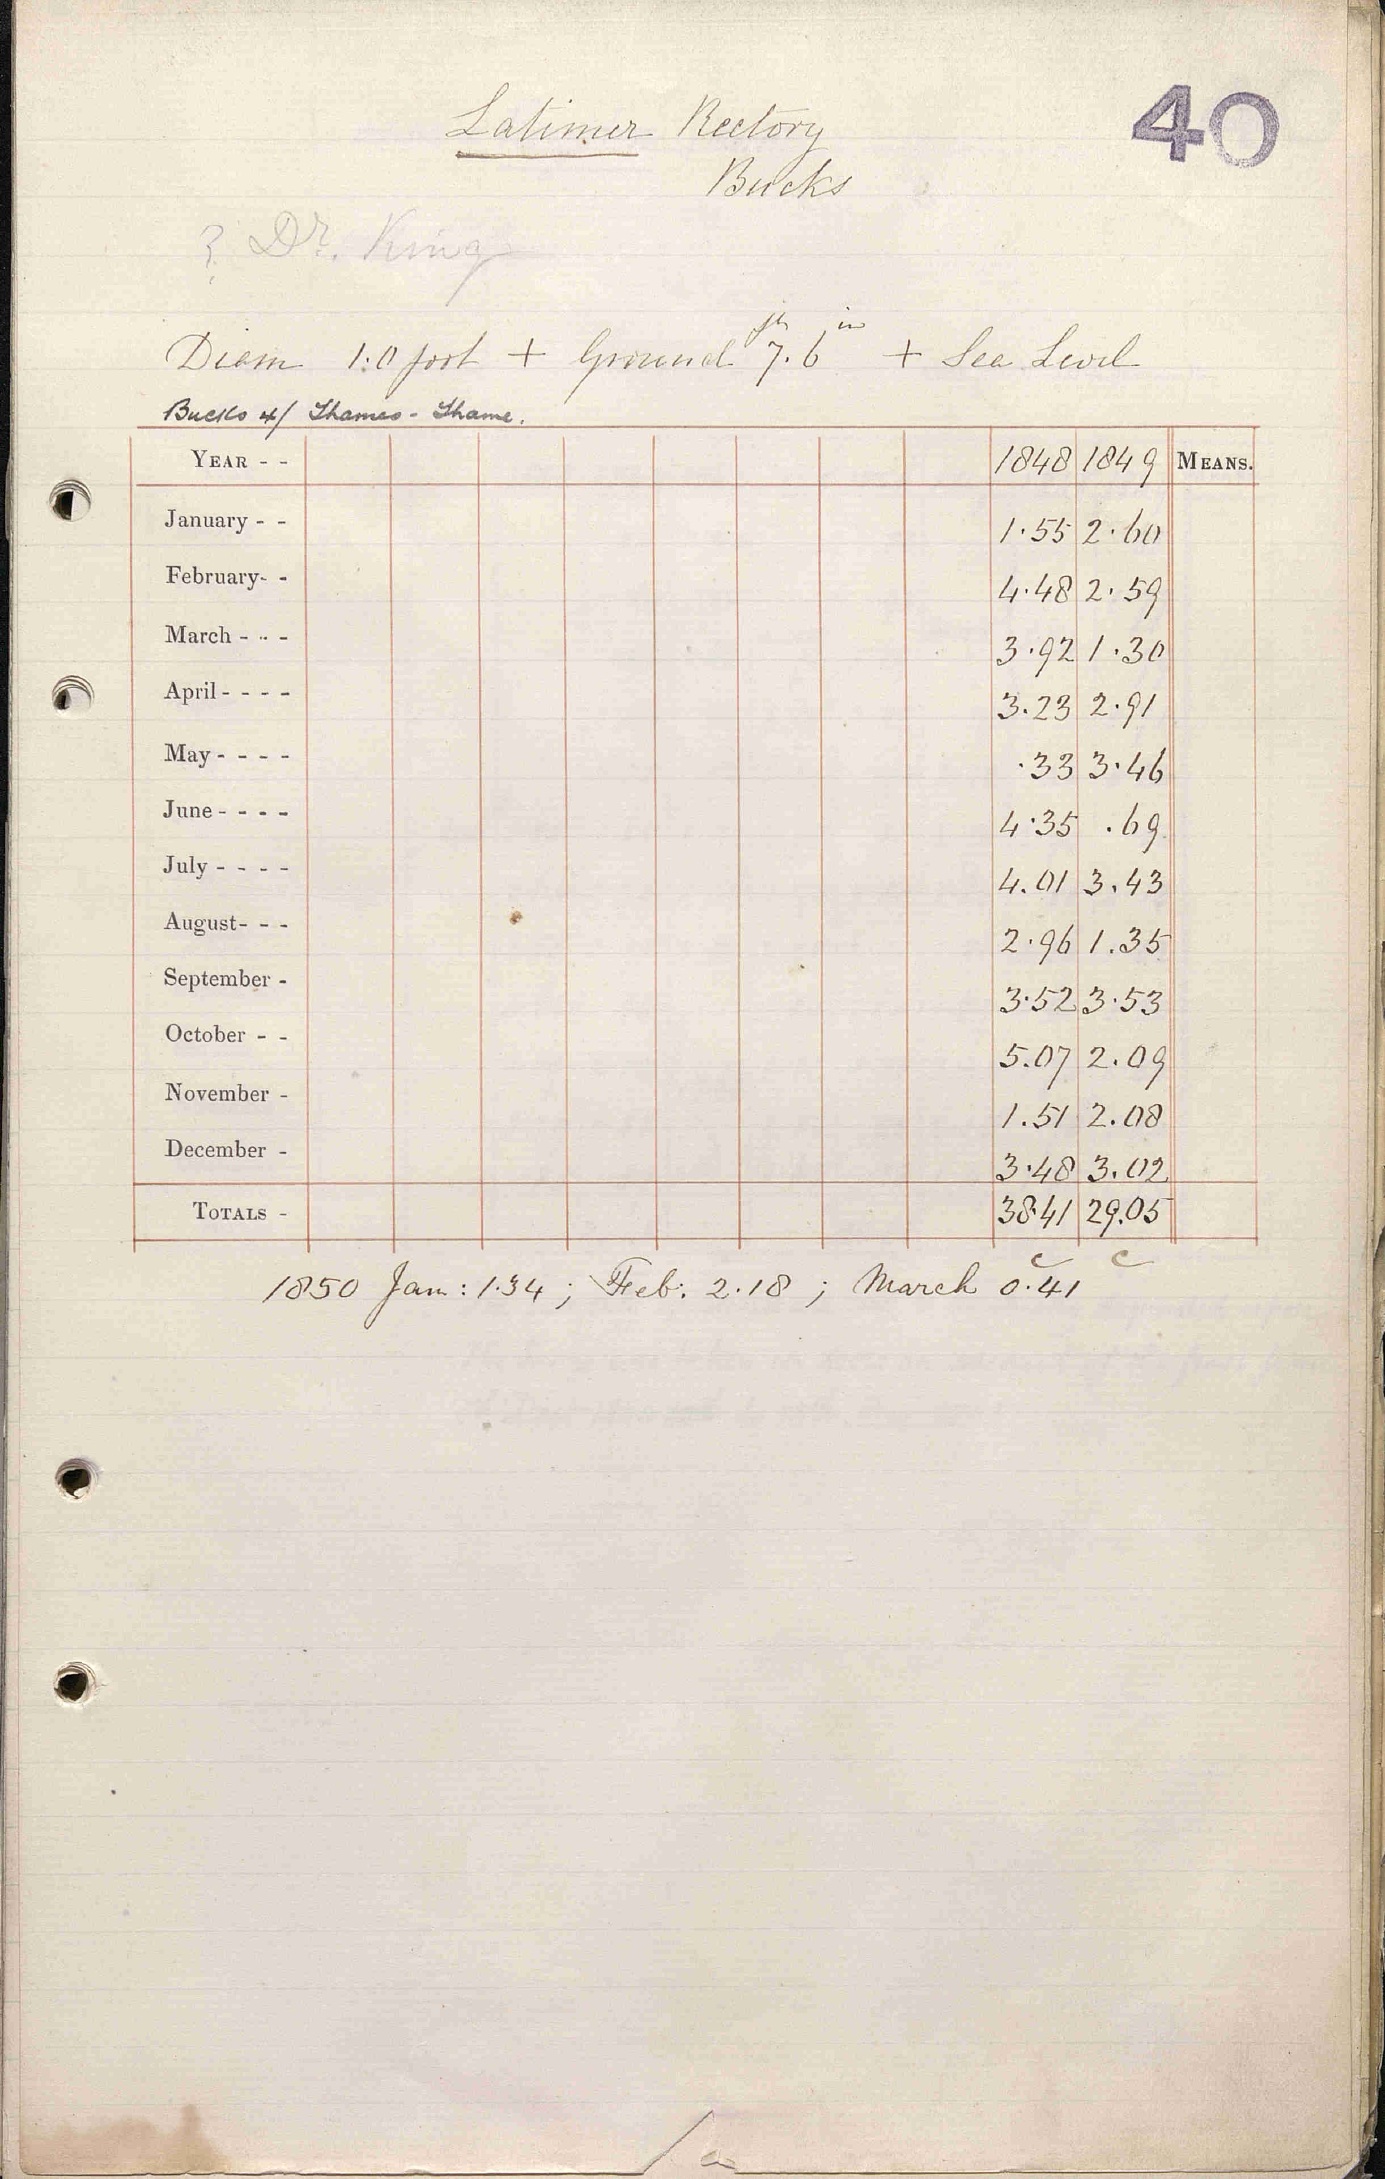 40
Latimer Rectory
Bucks
? Dr. King
Diam 1:0 foot + Ground 7 ft. 6 in + Sea Level
Bucks 4/ Thames - Thame.
YEAR - - 1848 1849 MEANS.
January - - 1.55 2.60
February- - 4.48 2.59
March - - - 3.92 1.30
April - - - - 3.23 2.91
May - - - - .33 3.46
June - - - - 4.35 .69
July - - - - 4.01 3.43
August- - - 2.96 1.35
September - 3.52 3.53
October - - 5.07 2.09
November - 1.51 2.08
December - 3.48 3.02
TOTALS - 38.41 29.05
c c
1850 Jan: 1.34 ; Feb: 2.18 ; March 0.41